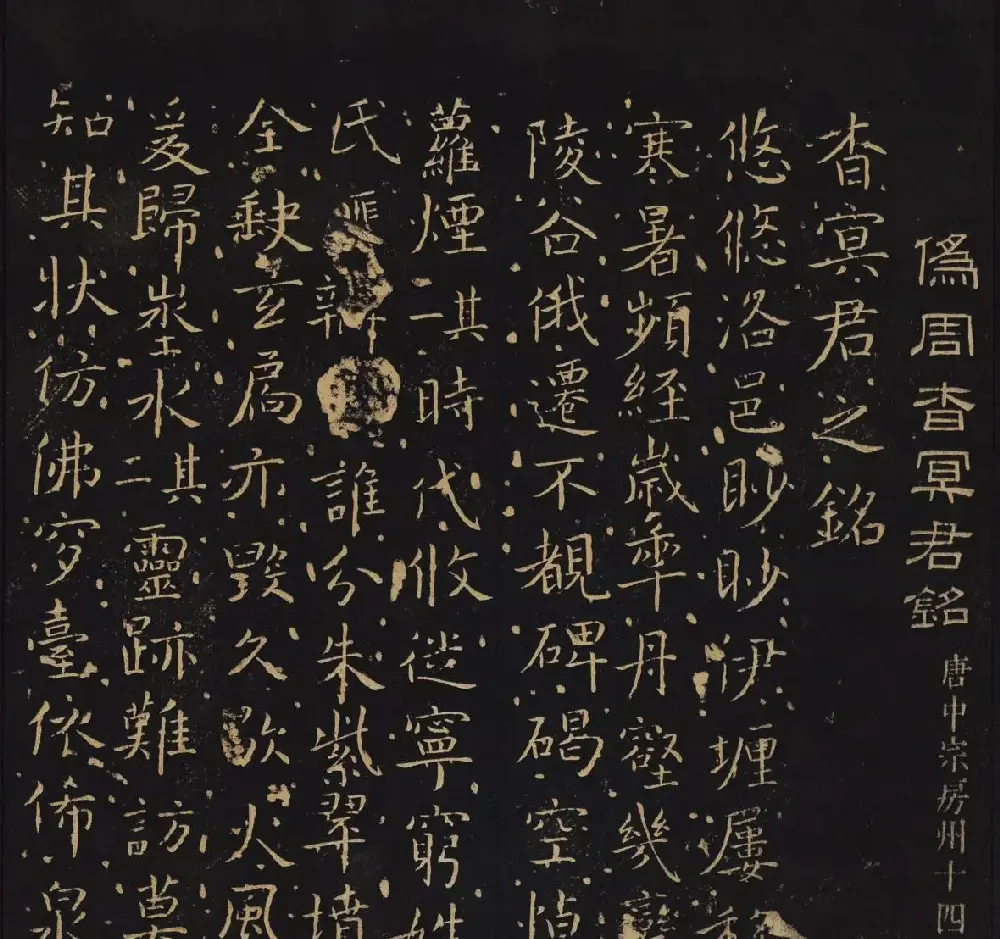 偽周杳冥君銘 唐中宗房州十四
杳冥君之銘
悠悠洛邑眇眇伊壥屢移
寒暑頻經歲年丹壑幾變
陵谷俄遷不覩碑碣空
蘿煙其一時代攸徙寧窮姓
氏辯誰分朱紫翠墳
全缺玄扃亦毀久歇火風
爰歸水其二靈跡難訪莫
知其狀仿佛穸臺依俙泉